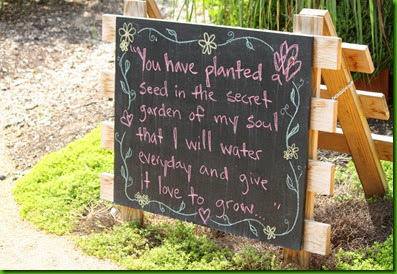 "You have planted a
seed in the secret
garden of my soul
that I will water
everyday and give
it love to grow..."